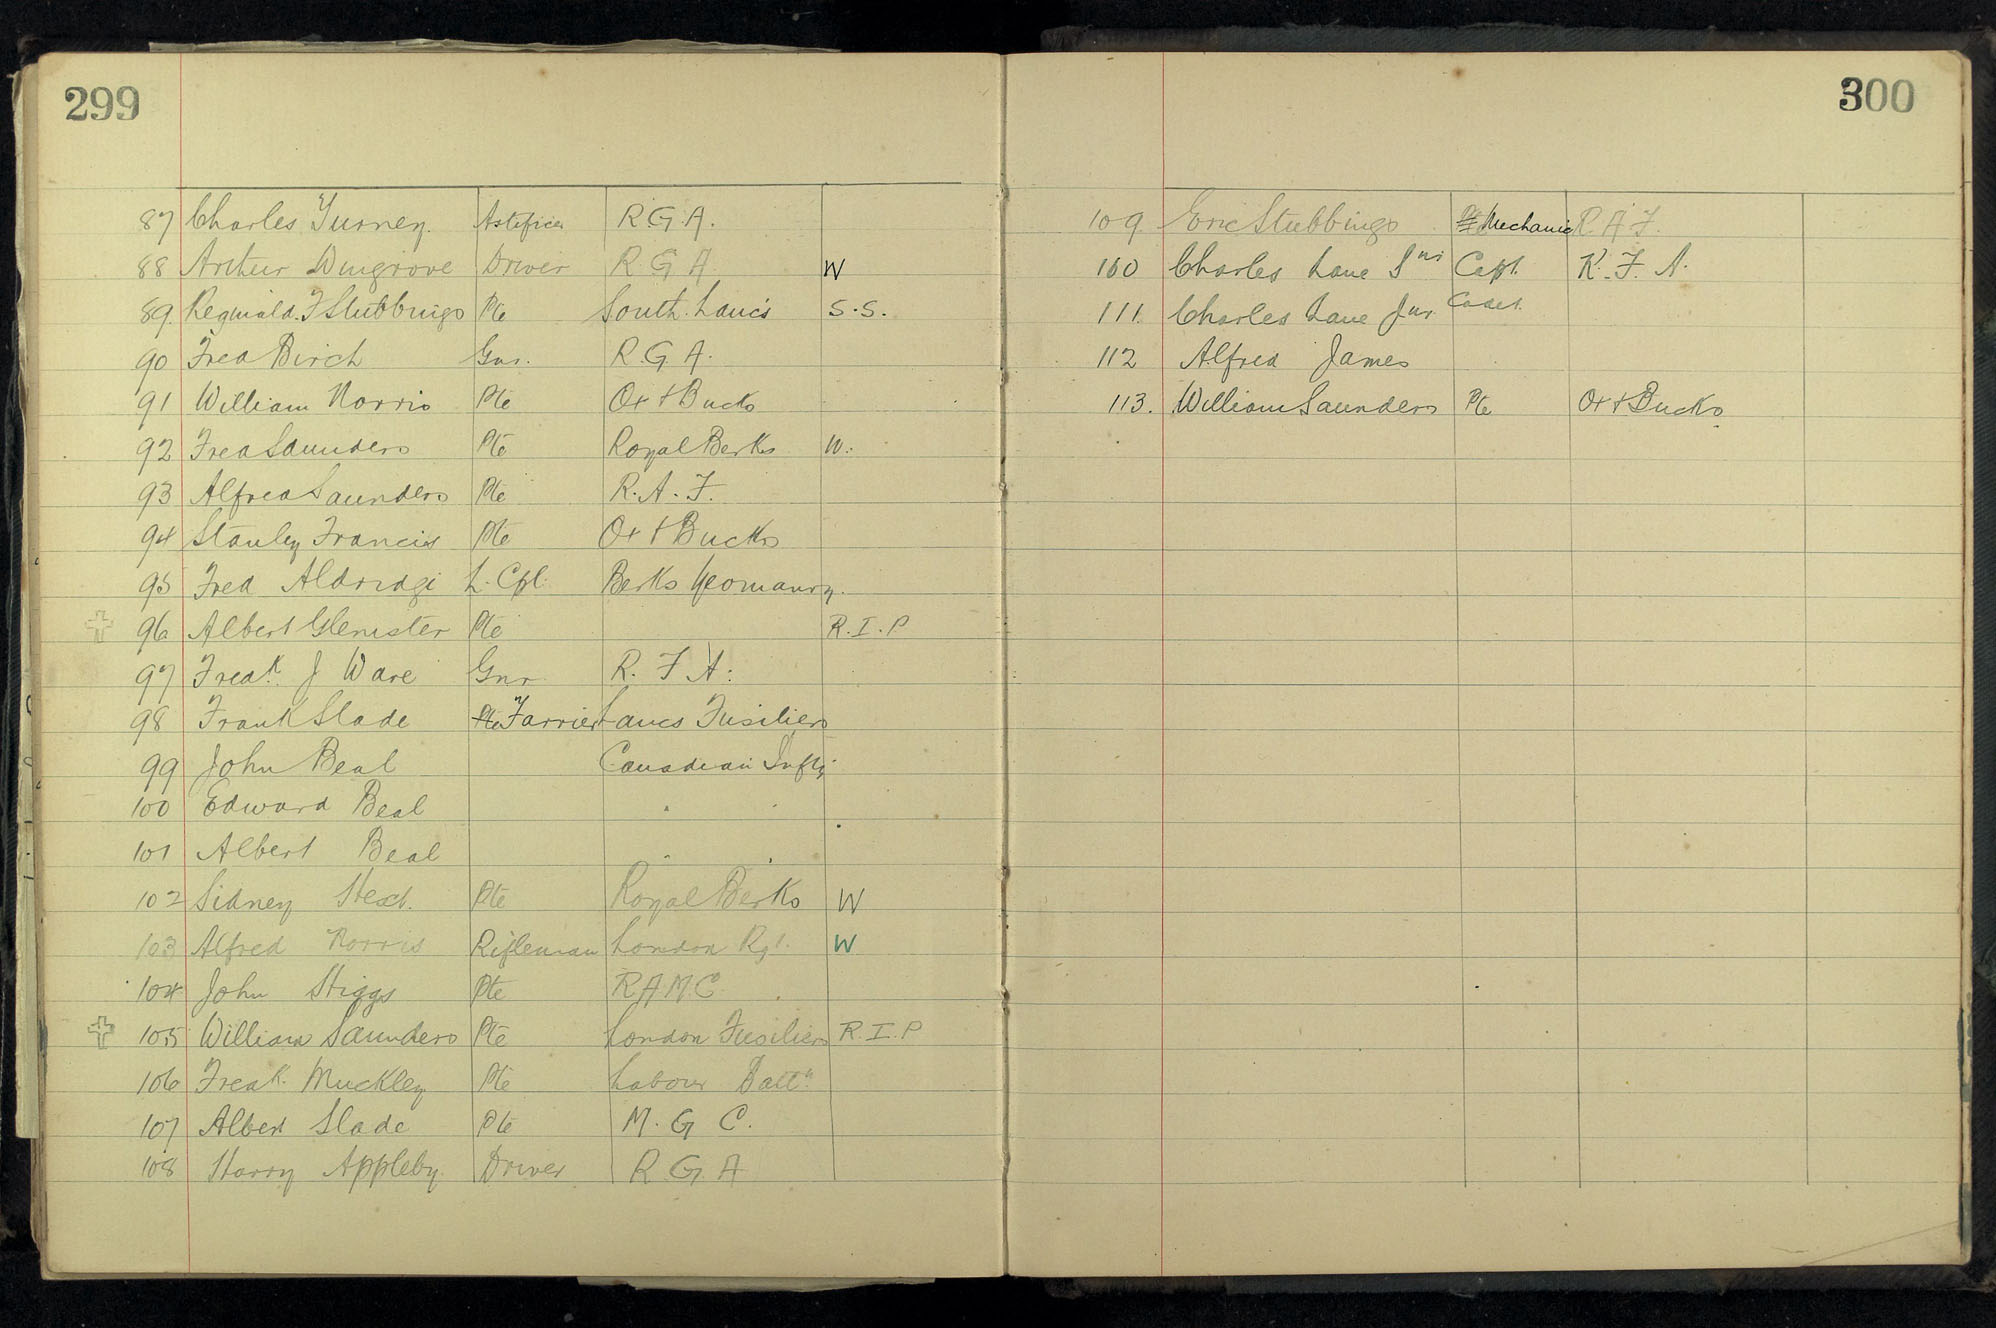 299
87 Charles Turney. Artificer R.G.A.
88 Arthur Wingrove Driver R.G.A W
89. Reginald. F Stubbings Pte South. Lancs S.S.
90 Fred Birch Gnr. R.G.A.
91 William Norris Pte Ox + Bucks
92 Fred Saunders Pte Royal Berks W.
93 Alfred Saunders Pte R.A.F.
94 Stanley Francis Pte Ox + Bucks
95 Fred Aldridge L. Cpl. Berks Yeomanry.
96 Albert Glenister Pte R.I.P
97 Fredk. J Ware Gnr R.F.A.
98 Frank Slade Pte Farrier Lancs Fusiliers
99 John Beal Canadian Infty
100 Edward Beal
101 Albert Beal
102 Sidney Hext. Pte Royal Berks W
103 Alfred Norris Rifleman London Rgt. W
104 John Higgs Pte RAMC
105 William Saunders Pte London Fusiliers R.I.P
106 Fredk. Muckley Pte Labour Battn.
107 Albert Slade Pte M.G.C.
108 Harry Appleby. Driver R.G.A
300
109 Eric Stubbings Mechanic R.A.F.
110 Charles Lane Snr Capt. R.F.A.
111. Charles Lane Jnr. Cadet.
112 Alfred James
113. William Saunders Pte Ox + Bucks